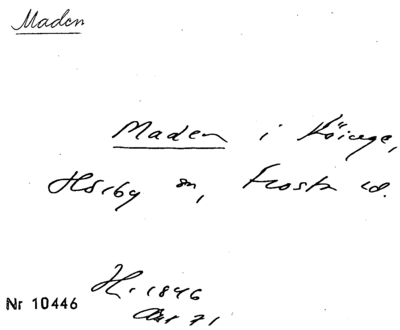 Maden
Maden i Köinge,
Hörby sn, Frosta hd.
H. 1846
Nr 10446
Akt 71